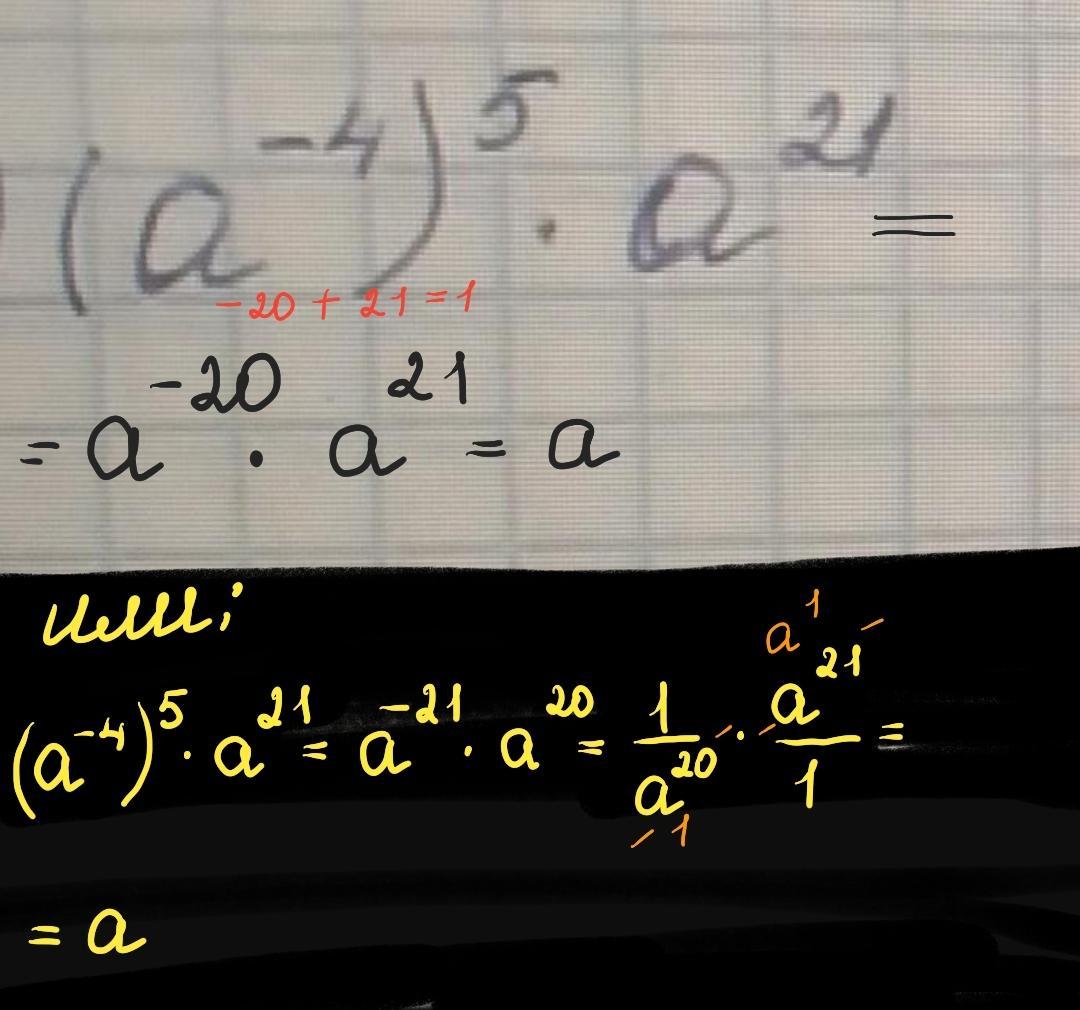 (a⁻⁴)⁵ · a²¹ =
-20 + 21 = 1
= a⁻²⁰ · a²¹ = a
или:
a¹
(a⁻⁴)⁵ · a²¹ = a⁻²¹ · a²⁰ = 1/a²⁰ · a²¹/1 =
1
= a